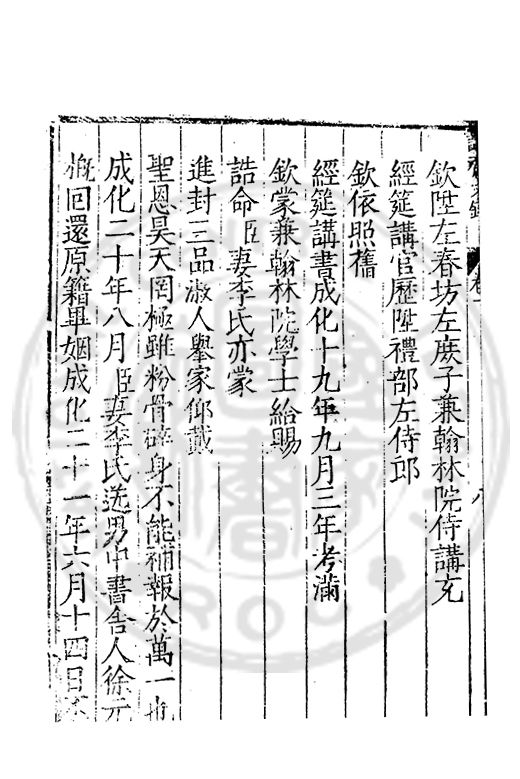 欽陞左春坊左庶子兼翰林院侍講充
經筵講官歷陞禮部左侍郎
欽依照舊
經筵講書成化十九年九月三年考滿
欽蒙兼翰林院學士給賜
誥命臣妻李氏亦蒙
進封三品淑人舉家仰戴
聖恩昊天罔極雖粉骨碎身不能補報於萬一也
成化二十年八月臣妻李氏送男中書舍人徐元
概回還原籍畢姻成化二十一年六月十四日